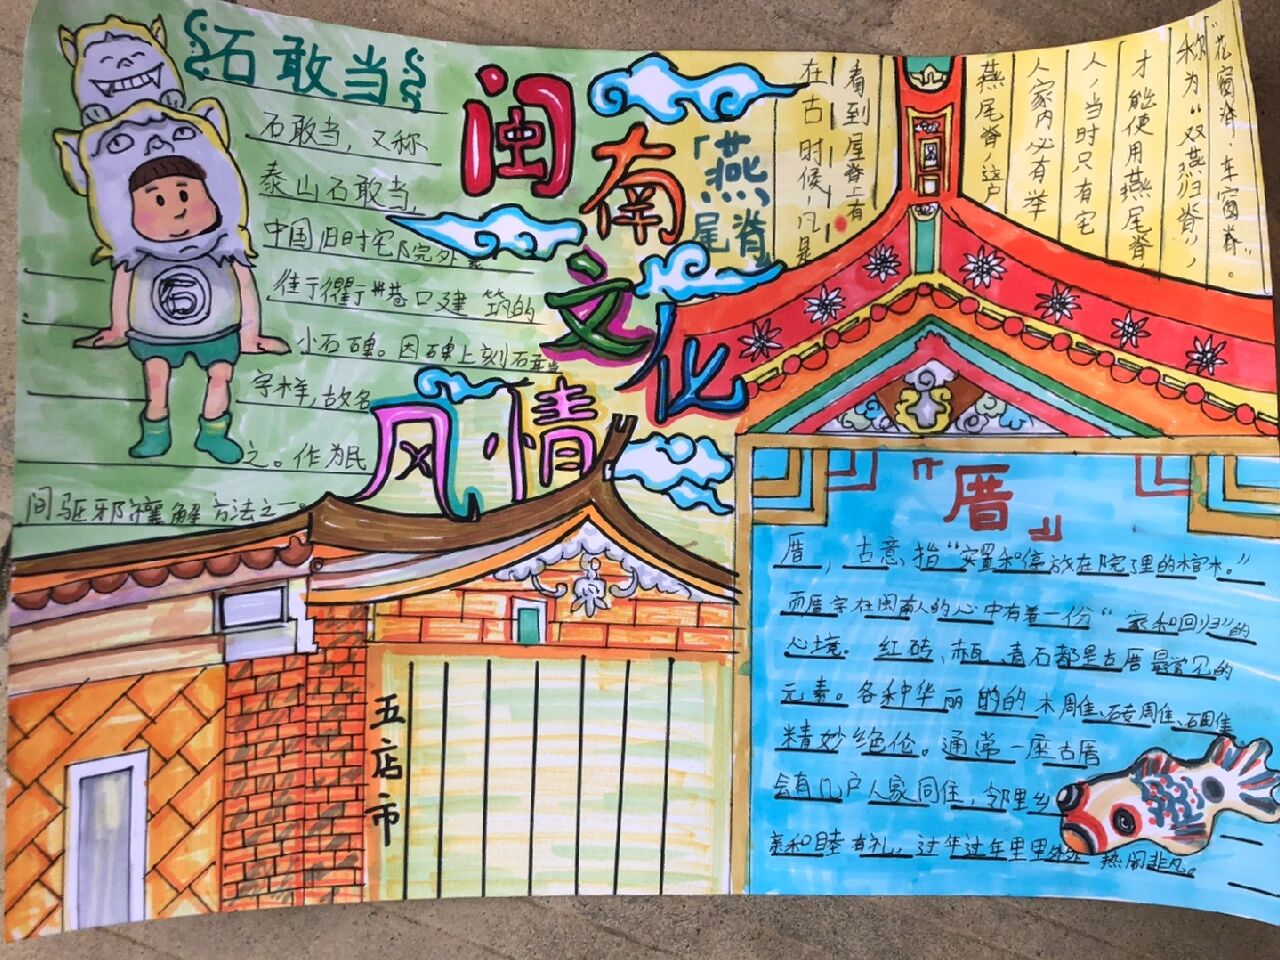 石敢当
石敢当，又称
泰山石敢当，
中国旧时宅院外
小石碑。因碑上刻石敢当
字样，故名
之。作为民
间驱邪禳解方法之一。
石
闽南文化
风情
「燕
尾脊
在古时候，凡是
看到屋脊上有
燕尾脊，这户
人家内必有举
人，当时只有宅
才能使用燕尾脊，
称为“双燕归脊”，
五店市
『厝』
厝，古意指“安置和停放在院子里的棺木。”
而厝字在闽南人的心中有着一份“家和回归”的
心境。红砖、赤瓦、青石都是古厝最常见的
元素。各种华丽的的木雕、砖雕、石雕
精妙绝伦。通常一座古厝
会有几户人家同住，邻里乡
亲和睦有礼，过年过年里里外外热闹非凡。